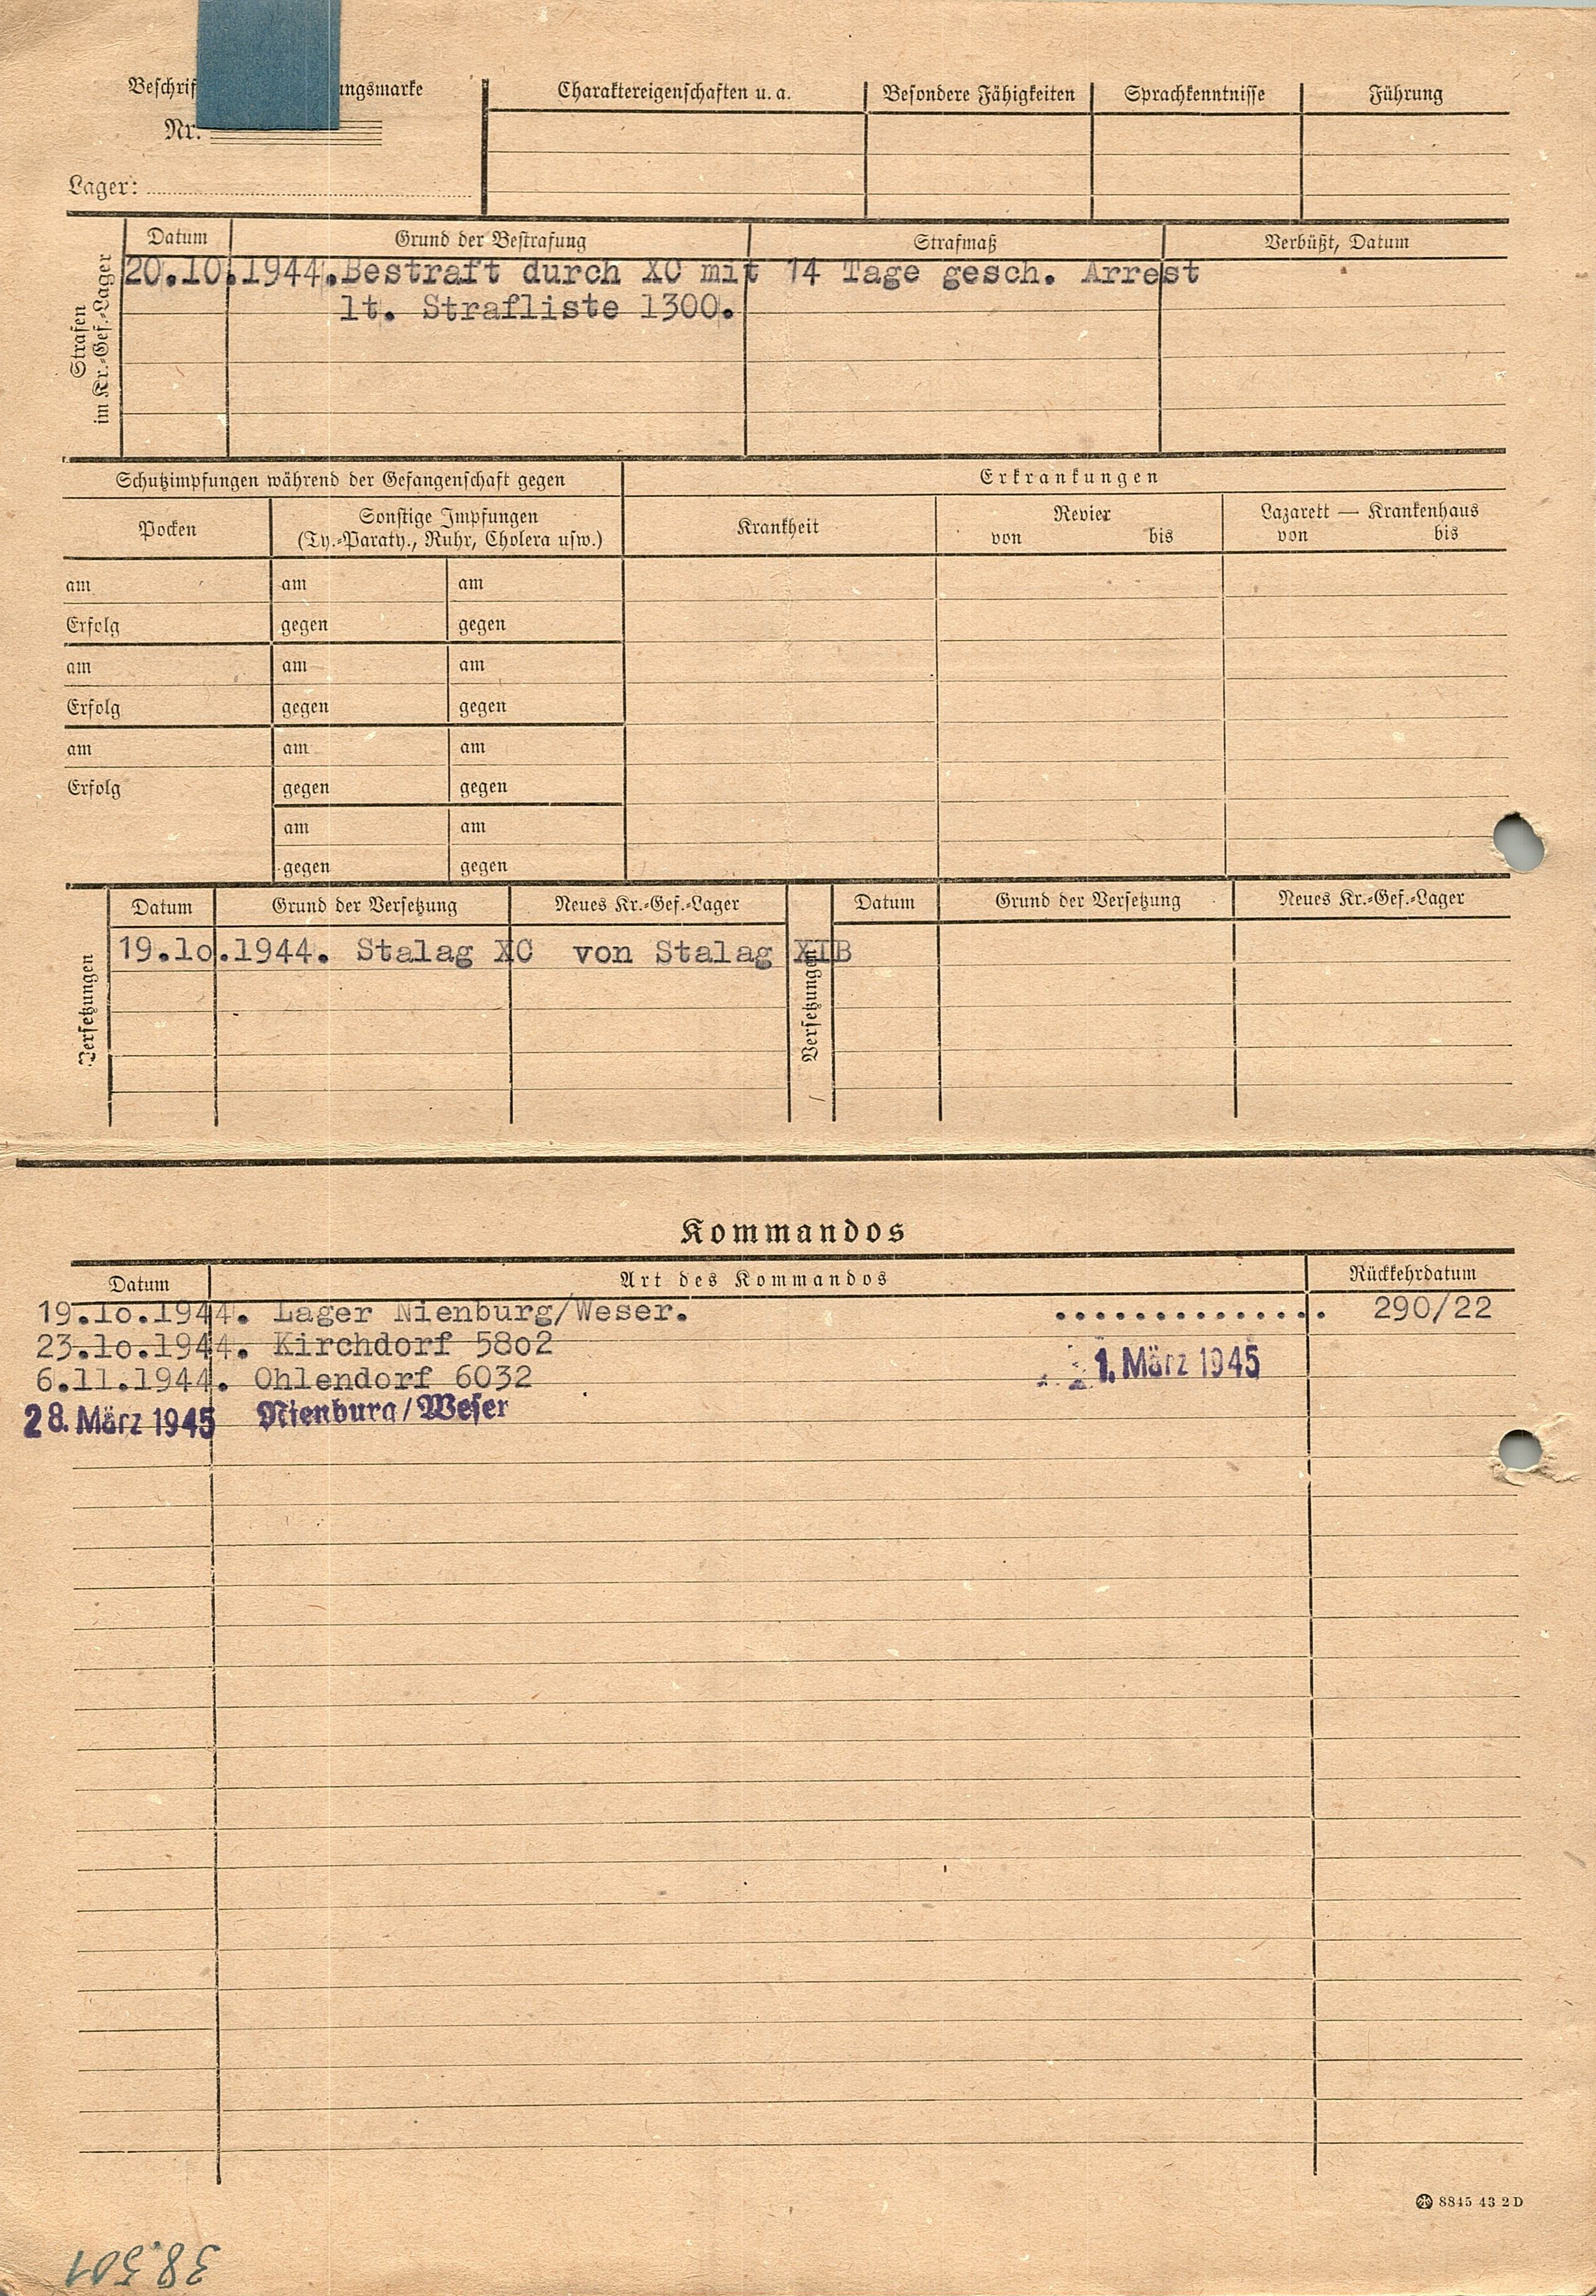 Beschrif ungsmarke
Nr.
Lager:
Charaktereigenschaften u. a. Besondere Fähigkeiten Sprachkenntnisse Führung
Strafen
im Kr.-Gef.-Lager
Datum Grund der Bestrafung Strafmaß Verbüßt, Datum
20.10.1944. Bestraft durch XC mit 14 Tage gesch. Arrest
lt. Strafliste 1300.
Schutzimpfungen während der Gefangenschaft gegen Erkrankungen
Pocken Sonstige Impfungen
(Ty.-Paraty., Ruhr, Cholera usw.) Krankheit Revier
von bis Lazarett — Krankenhaus
von bis
am am am
Erfolg gegen gegen
am am am
Erfolg gegen gegen
am am am
Erfolg gegen gegen
am am
gegen gegen
Versetzungen
Datum Grund der Versetzung Neues Kr.-Gef.-Lager
Versetzungen
Datum Grund der Versetzung Neues Kr.-Gef.-Lager
19.lo.1944. Stalag XC von Stalag XIB
Kommandos
Datum Art des Kommandos Rückkehrdatum
19.lo.1944. Lager Nienburg/Weser. .............. 290/22
23.lo.1944. Kirchdorf 58o2
6.11.1944. Ohlendorf 6032 1. März 1945
28. März 1945 Nienburg/Weser
8845 43 2 D
38.501